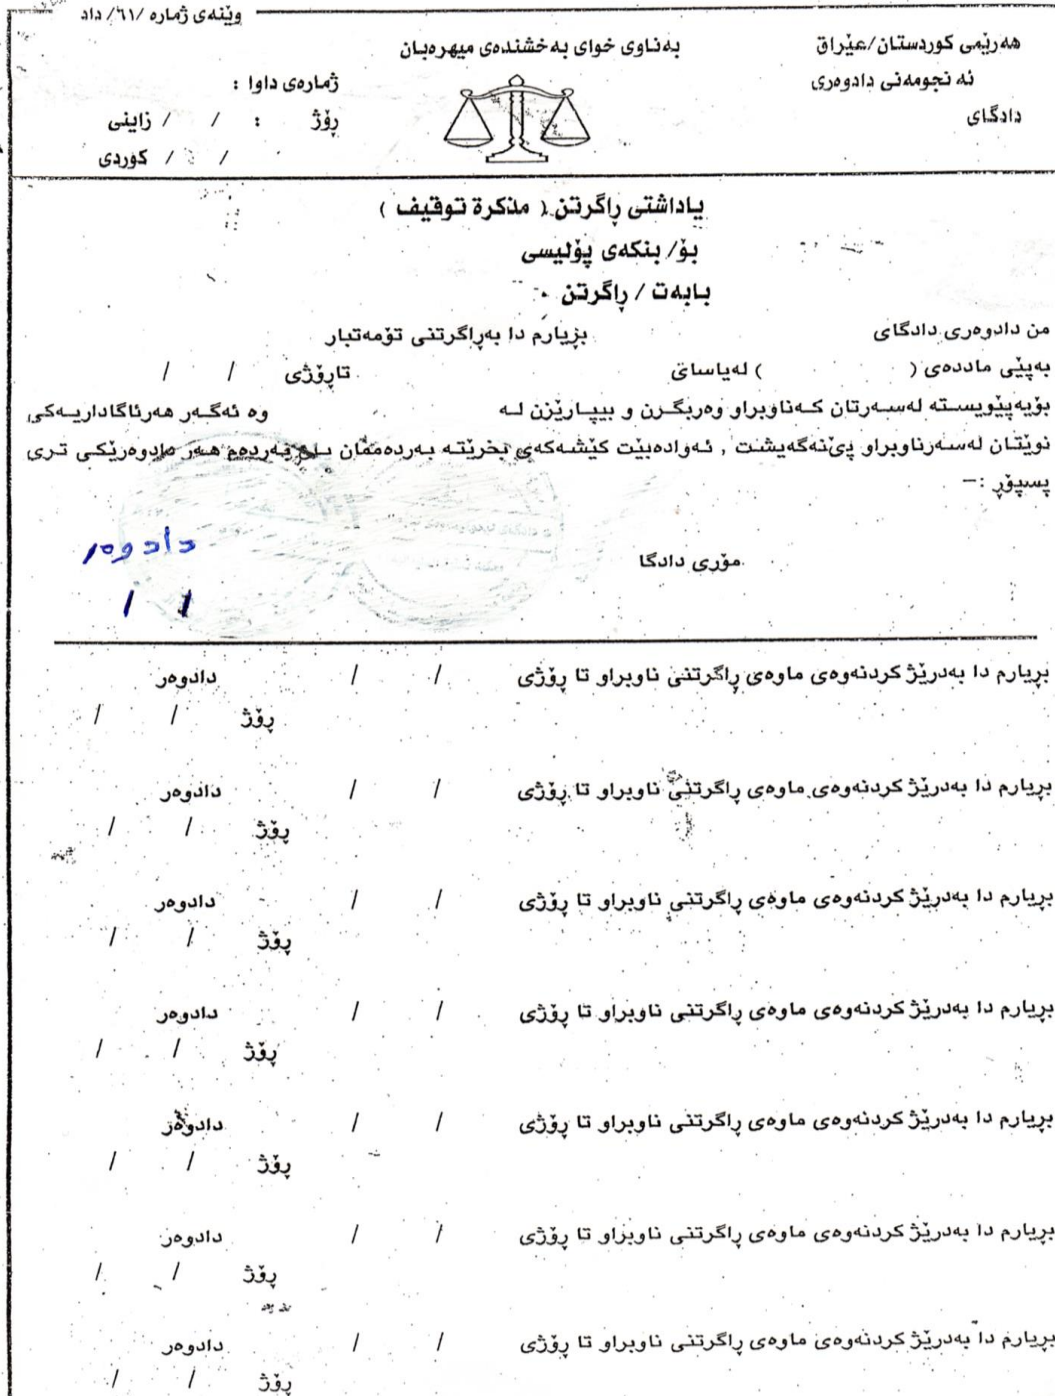 وێنەی ژمارە /٦١/ داد
هەرێمی کوردستان/عێراق
ئە نجومەنی دادوەری
دادگای
بەناوی خوای بەخشندەی میهرەبان
ژمارەی داوا :
ڕۆژ : / / زاینی
/ / کوردی
یاداشتی ڕاگرتن ( مذکرة توقیف )
بۆ/ بنکەی پۆلیسی
بابەت / ڕاگرتن
من دادوەری دادگای بڕیارم دا بەڕاگرتنی تۆمەتبار
بەپێی ماددەی ( ) لەیاسای تاڕۆژی / /
بۆیەپێویستە لەسەرتان کەناوبراو وەربگرن و بیپارێزن لە وە ئەگەر هەرئاگاداریەکی
نوێتان لەسەرناوبراو پێ نەگەیشت , ئەوادەبێت کێشەکەی بخرێتە بەردەممان یان بەردەم هەر دادوەرێکی تری
پسپۆڕ :–
مۆری دادگا
دادوەر
/ /
بڕیارم دا بەدرێژ کردنەوەی ماوەی ڕاگرتنی ناوبراو تا ڕۆژی / / دادوەر
ڕۆژ / /
بڕیارم دا بەدرێژ کردنەوەی ماوەی ڕاگرتنی ناوبراو تا ڕۆژی / / دادوەر
ڕۆژ / /
بڕیارم دا بەدرێژ کردنەوەی ماوەی ڕاگرتنی ناوبراو تا ڕۆژی / / دادوەر
ڕۆژ / /
بڕیارم دا بەدرێژ کردنەوەی ماوەی ڕاگرتنی ناوبراو تا ڕۆژی / / دادوەر
ڕۆژ / /
بڕیارم دا بەدرێژ کردنەوەی ماوەی ڕاگرتنی ناوبراو تا ڕۆژی / / دادوەر
ڕۆژ / /
بڕیارم دا بەدرێژ کردنەوەی ماوەی ڕاگرتنی ناوبراو تا ڕۆژی / / دادوەر
ڕۆژ / /
بڕیارم دا بەدرێژ کردنەوەی ماوەی ڕاگرتنی ناوبراو تا ڕۆژی / / دادوەر
ڕۆژ / /